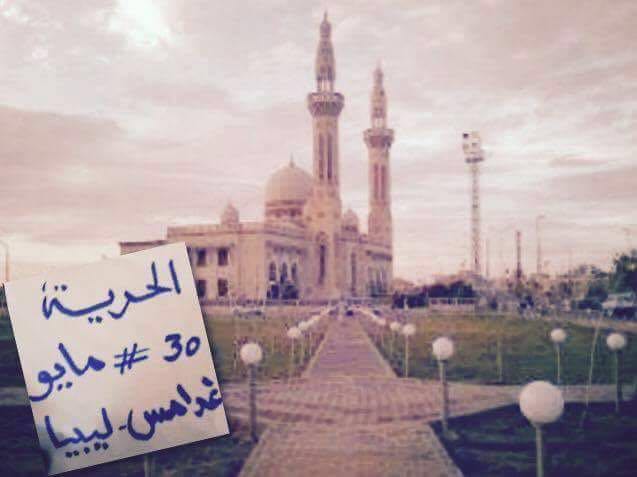 الحرية
30 # مايو
غدامس - ليبيا